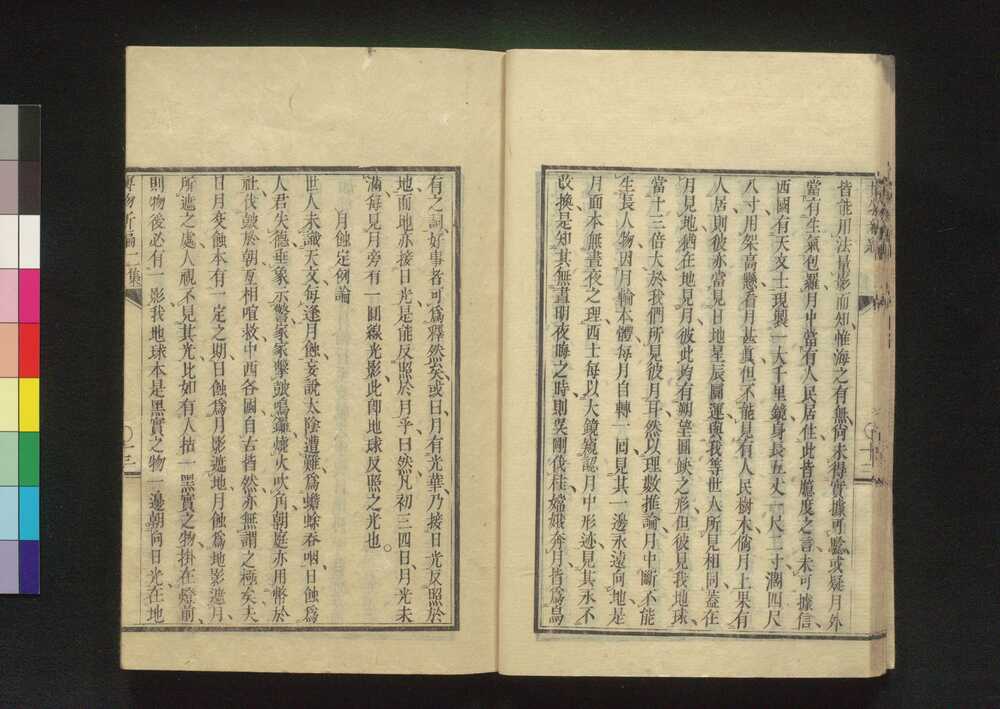 皆能用法量影而知惟海之有無尚未得實據可騐或疑月外
當有生氣包羅月中當有人民居住此皆臆度之言未可據信
西國有天文士現製一大千里鏡身長五丈一尺二寸濶四尺
八寸用架高懸看月甚真但不能見有人民樹木倘月上果有
人居則彼亦當見日地星辰圜運與我等世人所見相同蓋在
月見地猶在地見月彼此均有朔望圓缺之形但彼見我地球
當十三倍大於我們所見彼月耳然以理數推論月中斷不能
生長人物因月輪本體每月自轉一回見其一邊永遠向地是
月面本無晝夜之理西士每以大鏡窺認月中形迹見其永不
改換是知其無晝明夜晦之時則吳剛伐桂嫦娥奔月皆爲烏
十二
有之詞好事者可爲釋然矣或曰月有光華乃接日光反照於
地而地亦接日光是能反照於月乎曰然凡初三四日月光未
滿每見月旁有一圓線光影此卽地球反照之光也
月蝕定例論
世人未識天文每逢月蝕妄說太陰遭難爲蟾蜍吞咽日蝕爲
人君失德垂象示警家家擊鼓鳴鑼燒火吹角朝庭亦用幣於
社伐鼓於朝互相喧救中西各國自古皆然亦無謂之極矣夫
日月變蝕本有一定之期日蝕爲月影遮地月蝕爲地影遮月
所遮之處人視不見其光比如有人拈一黑實之物掛在燈前
則物後必有一影我地球本是黑實之物一邊朝向日光在地
博物新編二集
十三